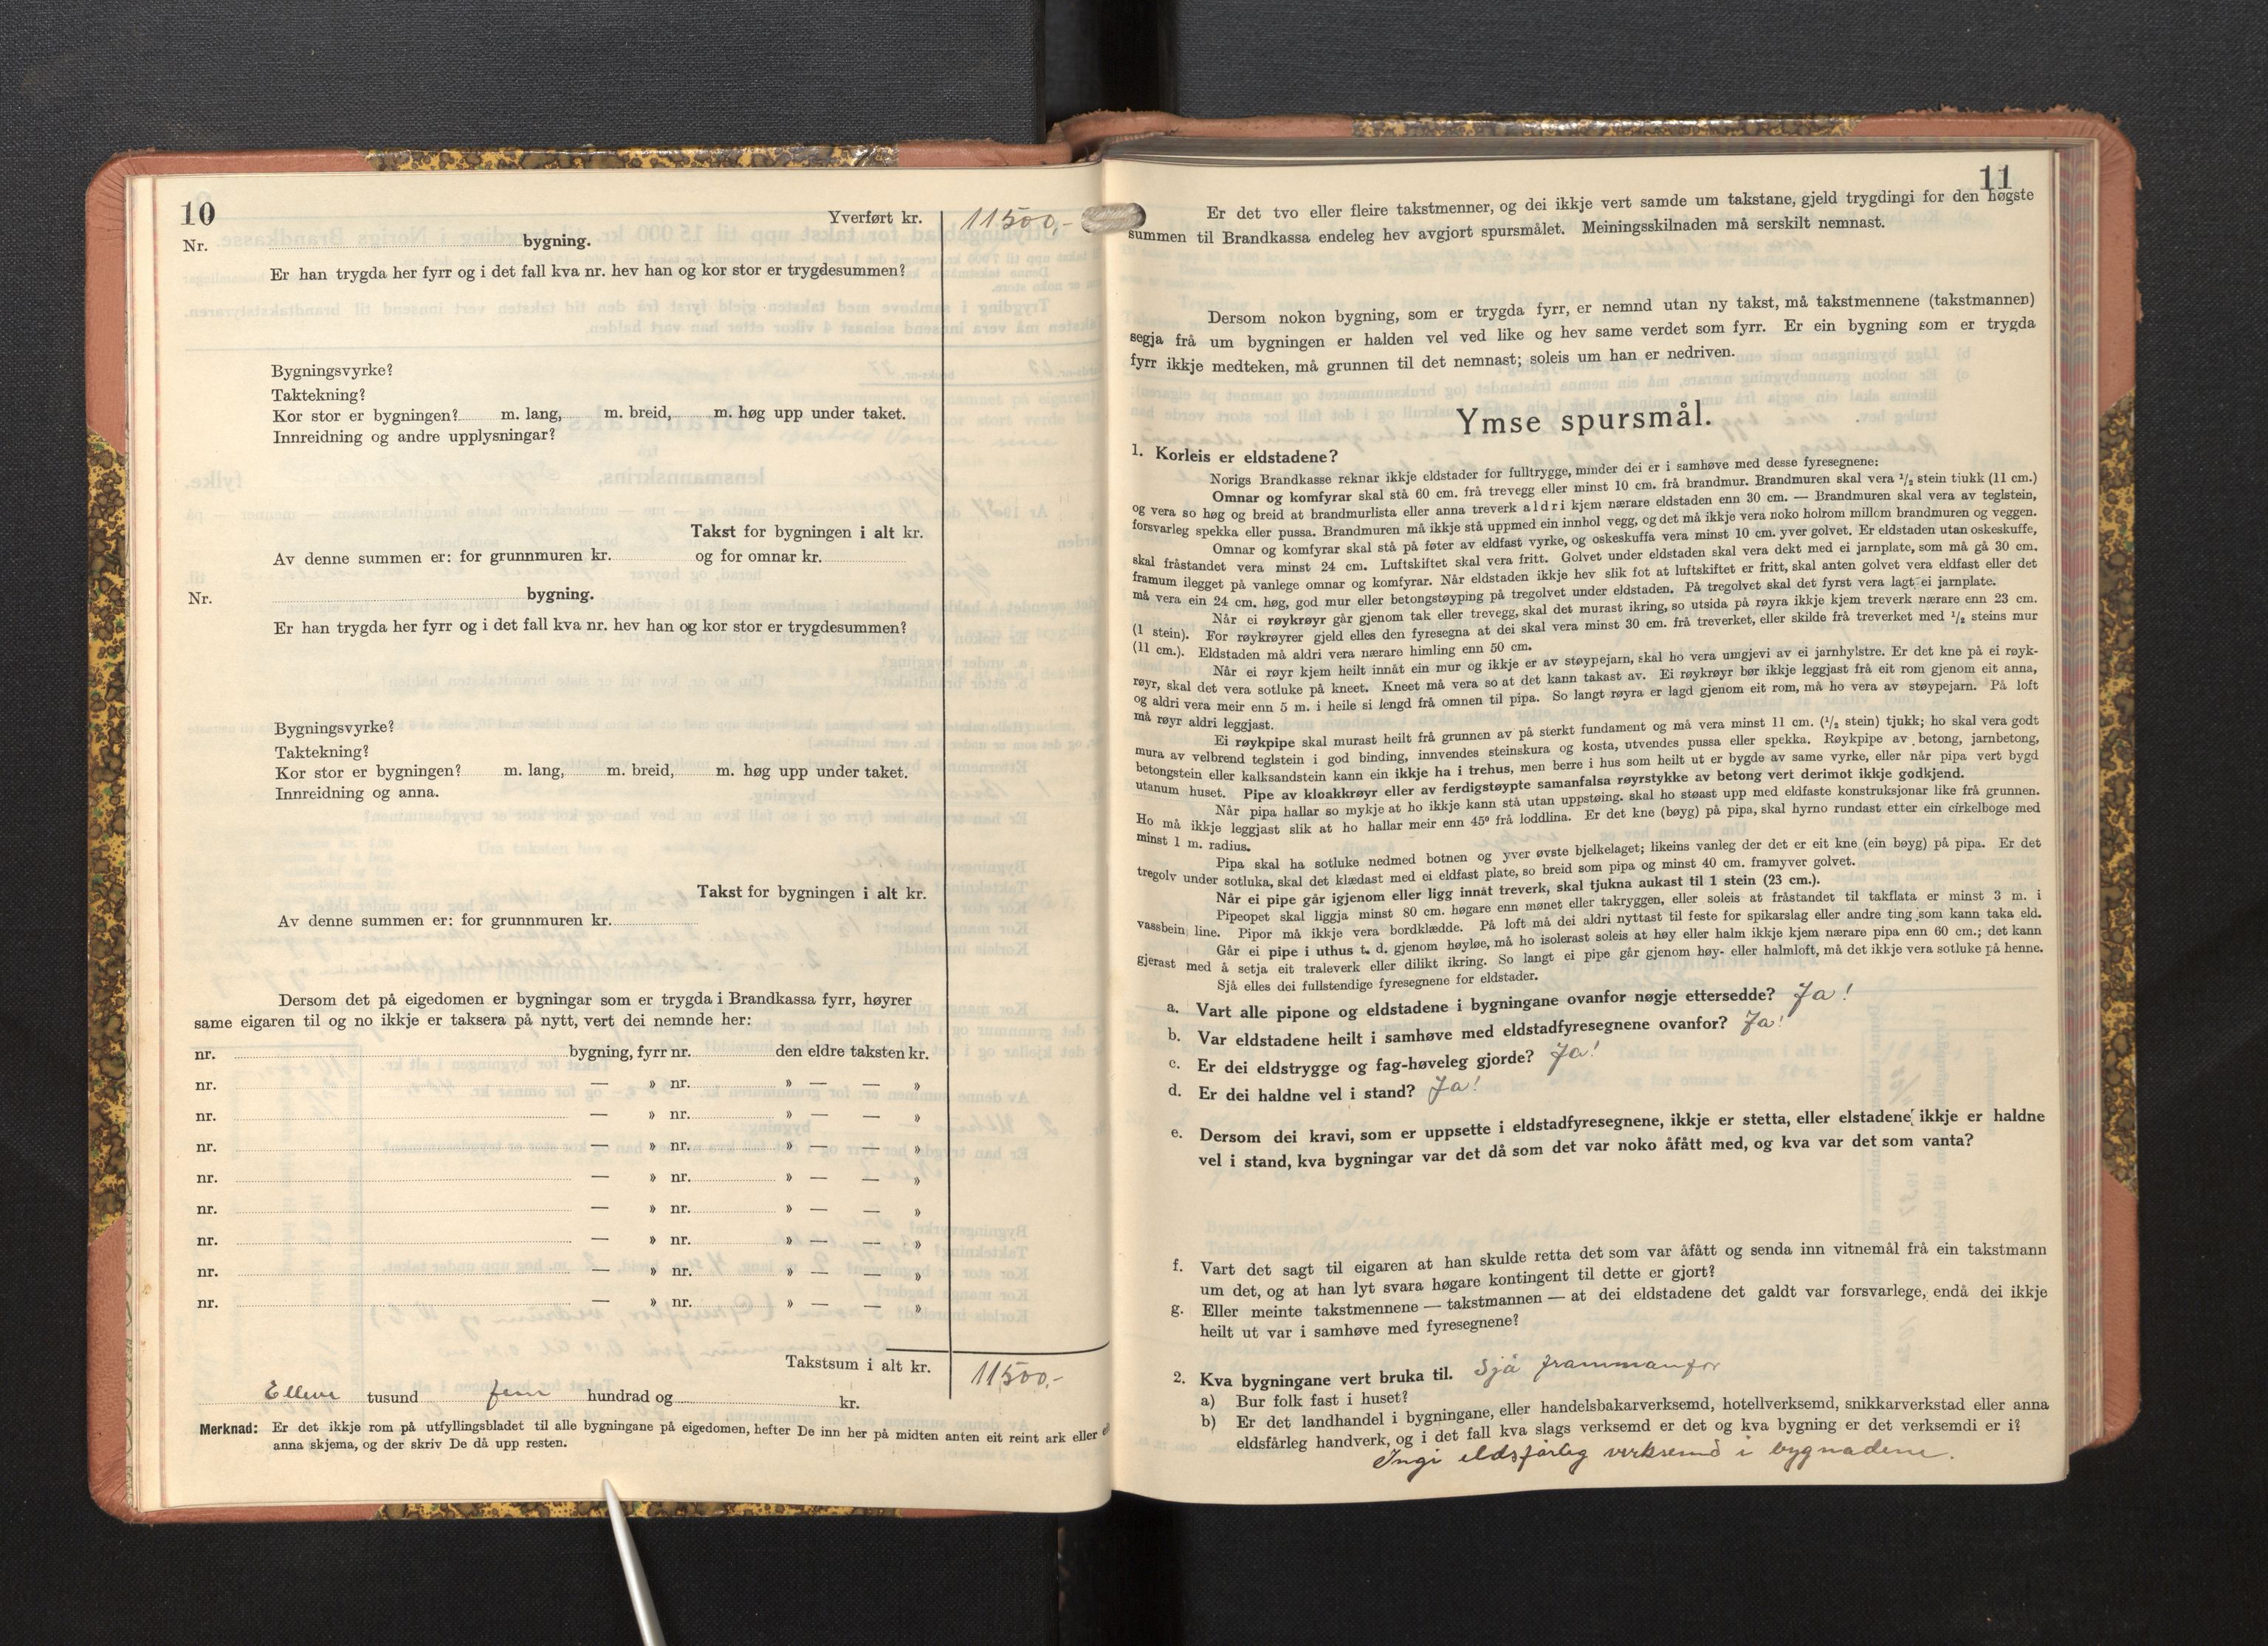 10
Yverført kr. 11500,-
Nr. bygning.
Er han trygda her fyrr og i det fall kva nr. hev han og kor stor er trygdesummen?
Bygningsvyrke?
Taktekning?
Kor stor er bygningen? m. lang, m. breid, m. høg upp under taket.
Innreidning og andre upplysningar?
Takst for bygningen i alt kr.
Av denne summen er: for grunnmuren kr. og for omnar kr.
Nr. bygning.
Er han trygda her fyrr og i det fall kva nr. hev han og kor stor er trygdesummen?
Bygningsvyrke?
Taktekning?
Kor stor er bygningen? m. lang, m. breid, m. høg upp under taket.
Innreidning og anna.
Takst for bygningen i alt kr.
Av denne summen er: for grunnmuren kr.
Dersom det på eigedomen er bygningar som er trygda i Brandkassa fyrr, høyrer
same eigaren til og no ikkje er taksera på nytt, vert dei nemnde her:
nr. bygning, fyrr nr. den eldre taksten kr.
nr. — » nr. » — — »
nr. — » nr. » — — »
nr. — » nr. » — — »
nr. — » nr. » — — »
nr. — » nr. » — — »
nr. — » nr. » — — »
nr. — » nr. » — — »
nr. — » nr. » — — »
Takstsum i alt kr. 11500,-
Elleve tusund fem hundrad og kr.
Merknad: Er det ikkje rom på utfyllingsbladet til alle bygningane på eigedomen, hefter De inn her på midten anten eit reint ark eller
anna skjema, og der skriv De då upp resten.
11
Er det tvo eller fleire takstmenner, og dei ikkje vert samde um takstane, gjeld trygdingi for den høgste
summen til Brandkassa endeleg hev avgjort spursmålet. Meiningsskilnaden må serskilt nemnast.
Dersom nokon bygning, som er trygda fyrr, er nemnd utan ny takst, må takstmennene (takstmannen)
segja frå um bygningen er halden vel ved like og hev same verdet som fyrr. Er ein bygning som er trygda
fyrr ikkje medteken, må grunnen til det nemnast; soleis um han er nedriven.
Ymse spursmål.
1. Korleis er eldstadene?
Norigs Brandkasse reknar ikkje eldstader for fulltrygge, minder dei er i samhøve med desse fyresegnene:
Omnar og komfyrar skal stå 60 cm. frå trevegg eller minst 10 cm. frå brandmur. Brandmuren skal vera 1/2 stein tiukk (11 cm.)
og vera so høg og breid at brandmurlista eller anna treverk aldri kjem nærare eldstaden enn 30 cm. — Brandmuren skal vera av teglstein,
forsvarleg spekka eller pussa. Brandmuren må ikkje stå uppmed ein innhol vegg, og det må ikkje vera noko holrom millom brandmuren og veggen.
Omnar og komfyrar skal stå på føter av eldfast vyrke, og oskeskuffa vera minst 10 cm. yver golvet. Er eldstaden utan oskeskuffe,
skal fråstandet vera minst 24 cm. Luftskiftet skal vera fritt. Golvet under eldstaden skal vera dekt med ei jarnplate, som må gå 30 cm.
framum ilegget på vanlege omnar og komfyrar. Når eldstaden ikkje hev slik fot at luftskiftet er fritt, skal anten golvet vera eldfast eller det
må vera ein 24 cm. høg, god mur eller betongstøyping på tregolvet under eldstaden. På tregolvet skal det fyrst vera lagt ei jarnplate.
Når ei røykrøyr går gjenom tak eller trevegg, skal det murast ikring, so utsida på røyra ikkje kjem treverk nærare enn 23 cm.
(1 stein). For røykrøyrer gjeld elles den fyresegna at dei skal vera minst 30 cm. frå treverket, eller skilde frå treverket med 1/2 steins mur
(11 cm.). Eldstaden må aldri vera nærare himling enn 50 cm.
Når ei røyr kjem heilt innåt ein mur og ikkje er av støypejarn, skal ho vera umgjevi av ei jarnhylstre. Er det kne på ei røyk-
røyr, skal det vera sotluke på kneet. Kneet må vera so at det kann takast av. Ei røykrøyr bør ikkje leggjast frå eit rom gjenom eit anna,
og aldri vera meir enn 5 m. i heile si lengd frå omnen til pipa. So langt røyra er lagd gjenom eit rom, må ho vera av støypejarn. På loft
må røyr aldri leggjast.
Ei røykpipe skal murast heilt frå grunnen av på sterkt fundament og må vera minst 11 cm. (1/2 stein) tjukk; ho skal vera godt
mura av velbrend teglstein i god binding, innvendes steinskura og kosta, utvendes pussa eller spekka. Røykpipe av betong, jarnbetong,
betongstein eller kalksandstein kann ein ikkje ha i trehus, men berre i hus som heilt ut er bygde av same vyrke, eller når pipa vert bygd
utanum huset. Pipe av kloakkrøyr eller av ferdigstøypte samanfalsa røyrstykke av betong vert derimot ikkje godkjend.
Når pipa hallar so mykje at ho ikkje kann stå utan uppstøing. skal ho støast upp med eldfaste konstruksjonar like frå grunnen.
Ho må ikkje leggjast slik at ho hallar meir enn 45° frå loddlina. Er det kne (bøyg) på pipa, skal hyrno rundast etter ein cirkelboge med
minst 1 m. radius.
Pipa skal ha sotluke nedmed botnen og yver øvste bjelkelaget; likeins vanleg der det er eit kne (ein bøyg) på pipa. Er det
tregolv under sotluka, skal det klædast med ei eldfast plate, so breid som pipa og minst 40 cm. framyver golvet.
Når ei pipe går igjenom eller ligg innåt treverk, skal tjukna aukast til 1 stein (23 cm.).
Pipeopet skal liggja minst 80 cm. høgare enn mønet eller takryggen, eller soleis at fråstandet til takflata er minst 3 m. i
vassbein line. Pipor må ikkje vera bordklædde. På loft må dei aldri nyttast til feste for spikarslag eller andre ting som kann taka eld.
Går ei pipe i uthus t. d. gjenom høyløe, må ho isolerast soleis at høy eller halm ikkje kjem nærare pipa enn 60 cm.; det kann
gjerast med å setja eit traleverk eller dilikt ikring. So langt ei pipe går gjenom høy- eller halmloft, må det ikkje vera sotluke på henne.
Sjå elles dei fullstendige fyresegnene for eldstader.
a. Vart alle pipone og eldstadene i bygningane ovanfor nøgje ettersedde? Ja!
b. Var eldstadene heilt i samhøve med eldstadfyresegnene ovanfor? Ja!
c. Er dei eldstrygge og fag-høveleg gjorde? Ja!
d. Er dei haldne vel i stand? Ja!
e. Dersom dei kravi, som er uppsette i eldstadfyresegnene, ikkje er stetta, eller elstadene ikkje er haldne
vel i stand, kva bygningar var det då som det var noko åfått med, og kva var det som vanta?
f. Vart det sagt til eigaren at han skulde retta det som var åfått og senda inn vitnemål frå ein takstmann
um det, og at han lyt svara høgare kontingent til dette er gjort?
g. Eller meinte takstmennene — takstmannen — at dei eldstadene det galdt var forsvarlege, endå dei ikkje
heilt ut var i samhøve med fyresegnene?
2. Kva bygningane vert bruka til. Sjå frammanfor
a) Bur folk fast i huset?
b) Er det landhandel i bygningane, eller handelsbakarverksemd, hotellverksemd, snikkarverkstad eller anna
eldsfårleg handverk, og i det fall kva slags verksemd er det og kva bygning er det verksemdi er i?
Ingi eldsfårleg verksemd i bygnadene.